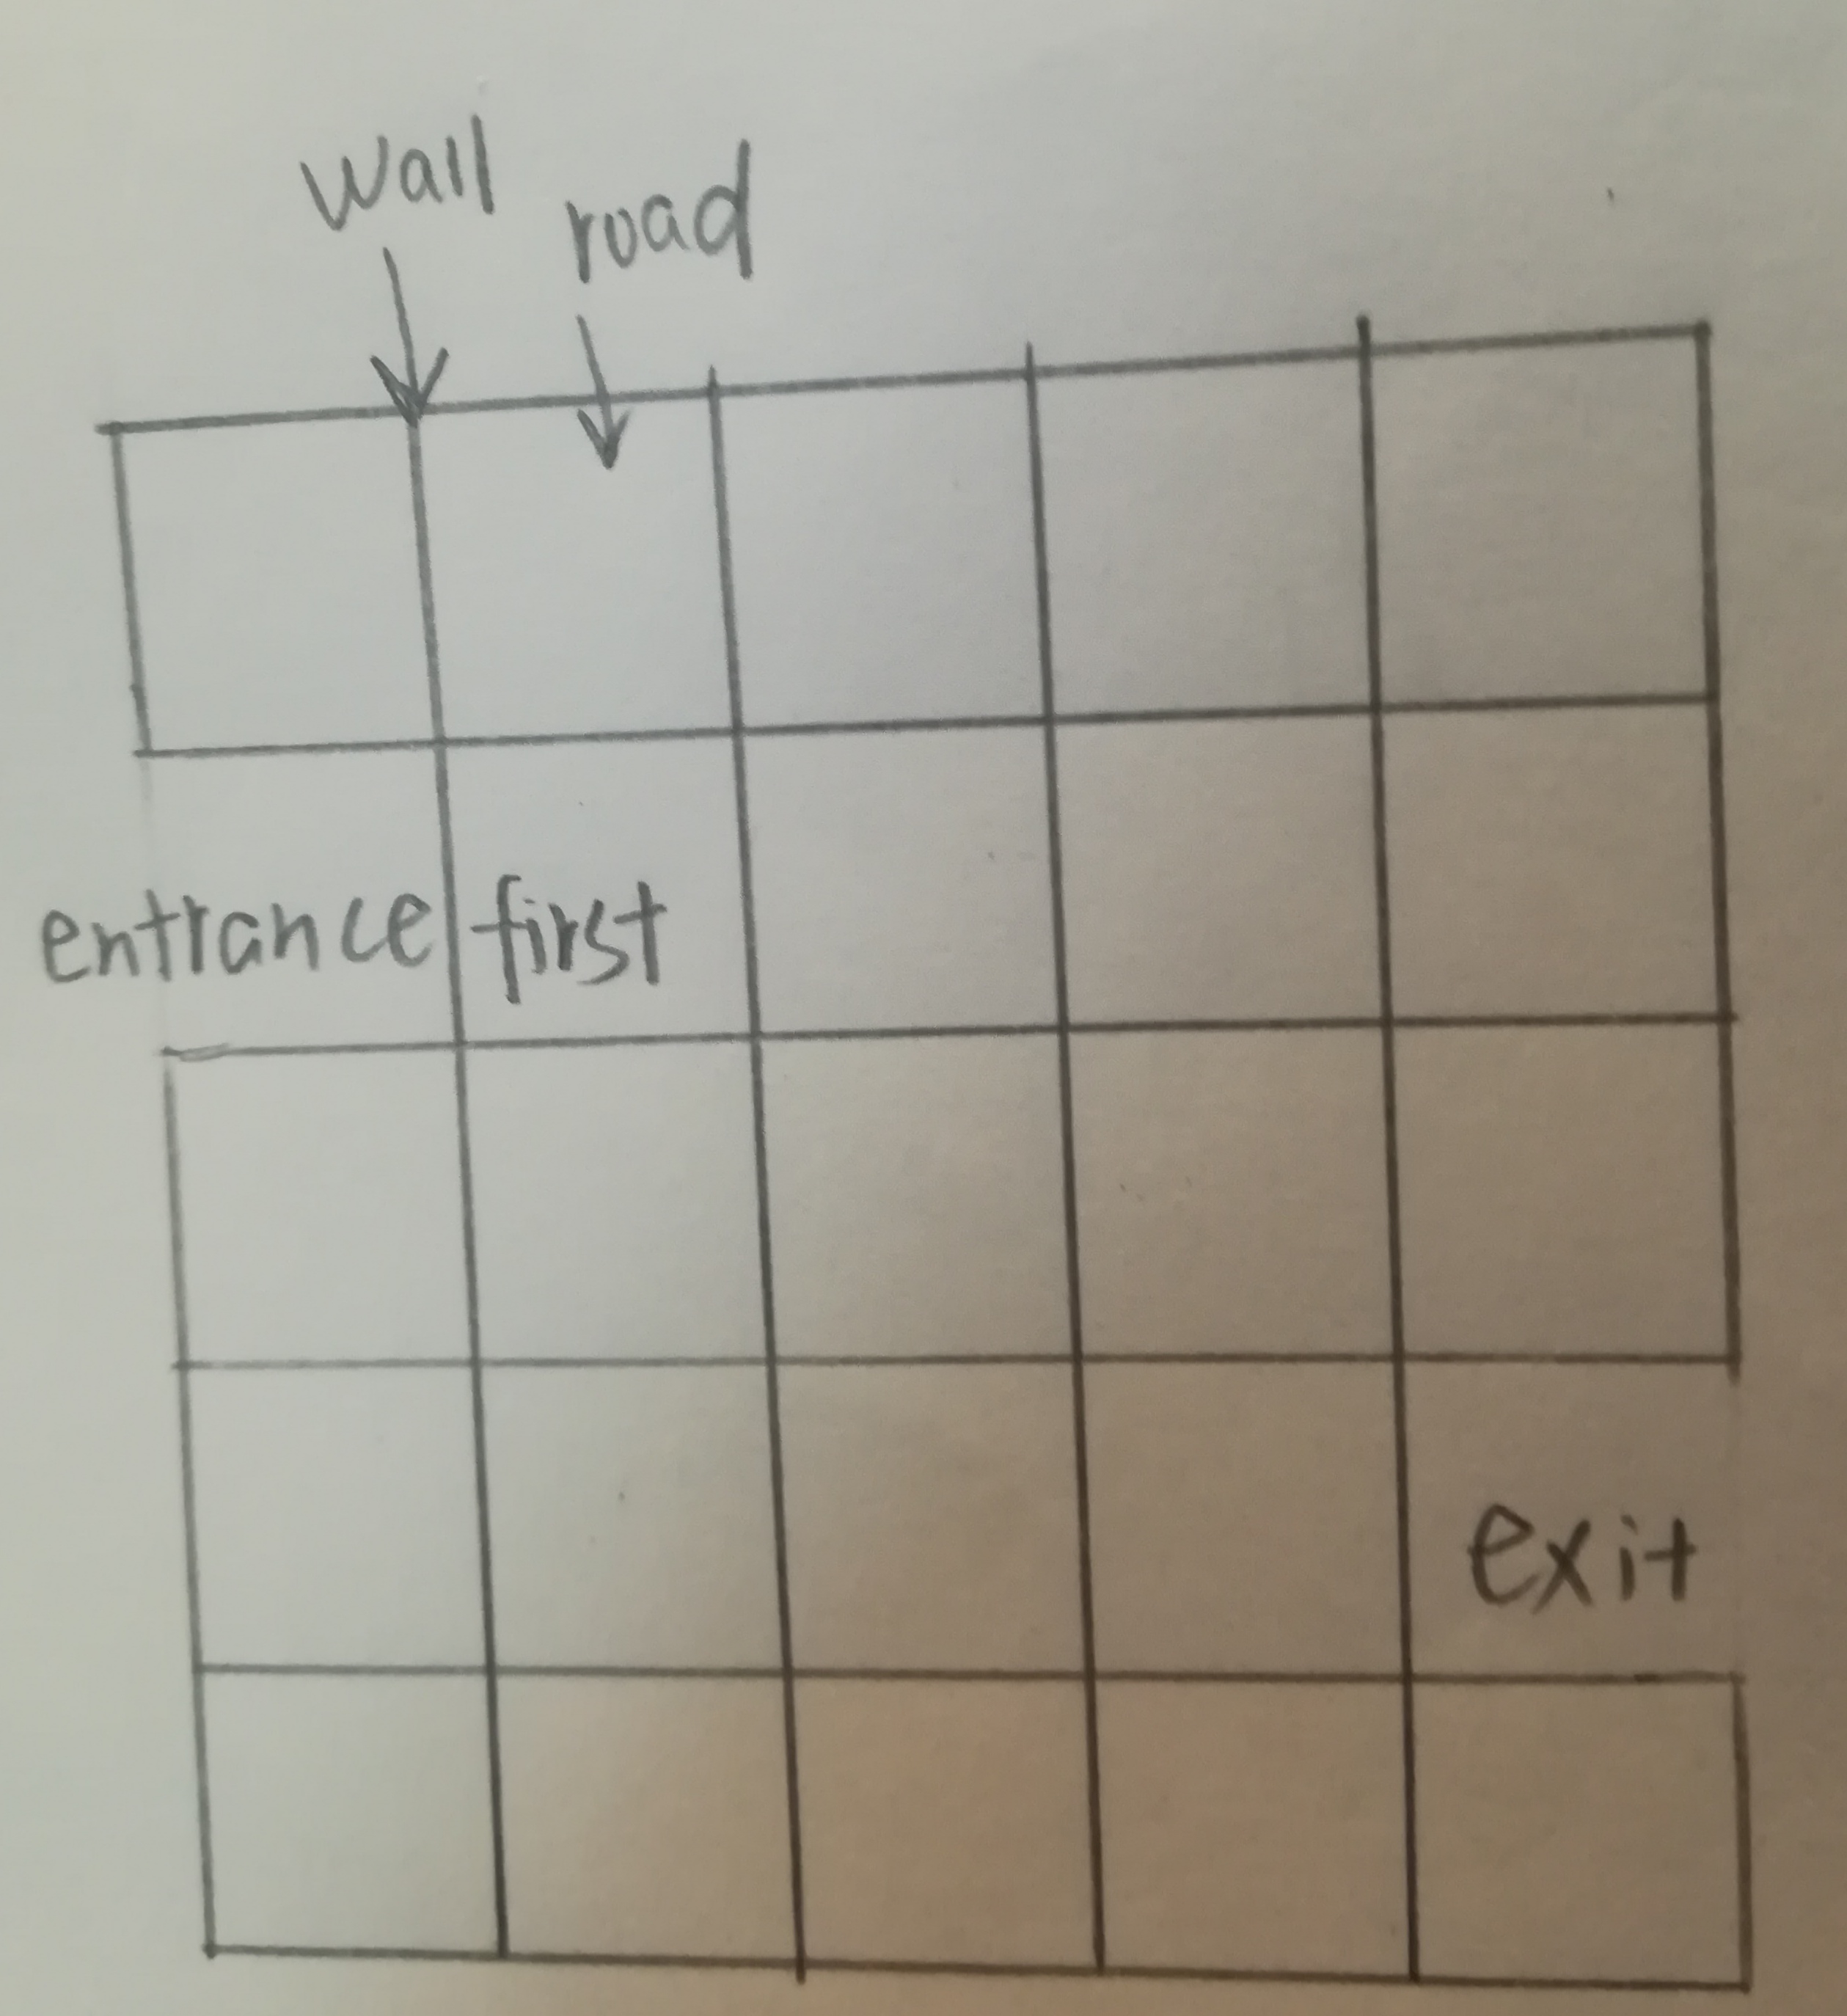 wall
road
entrance first
exit